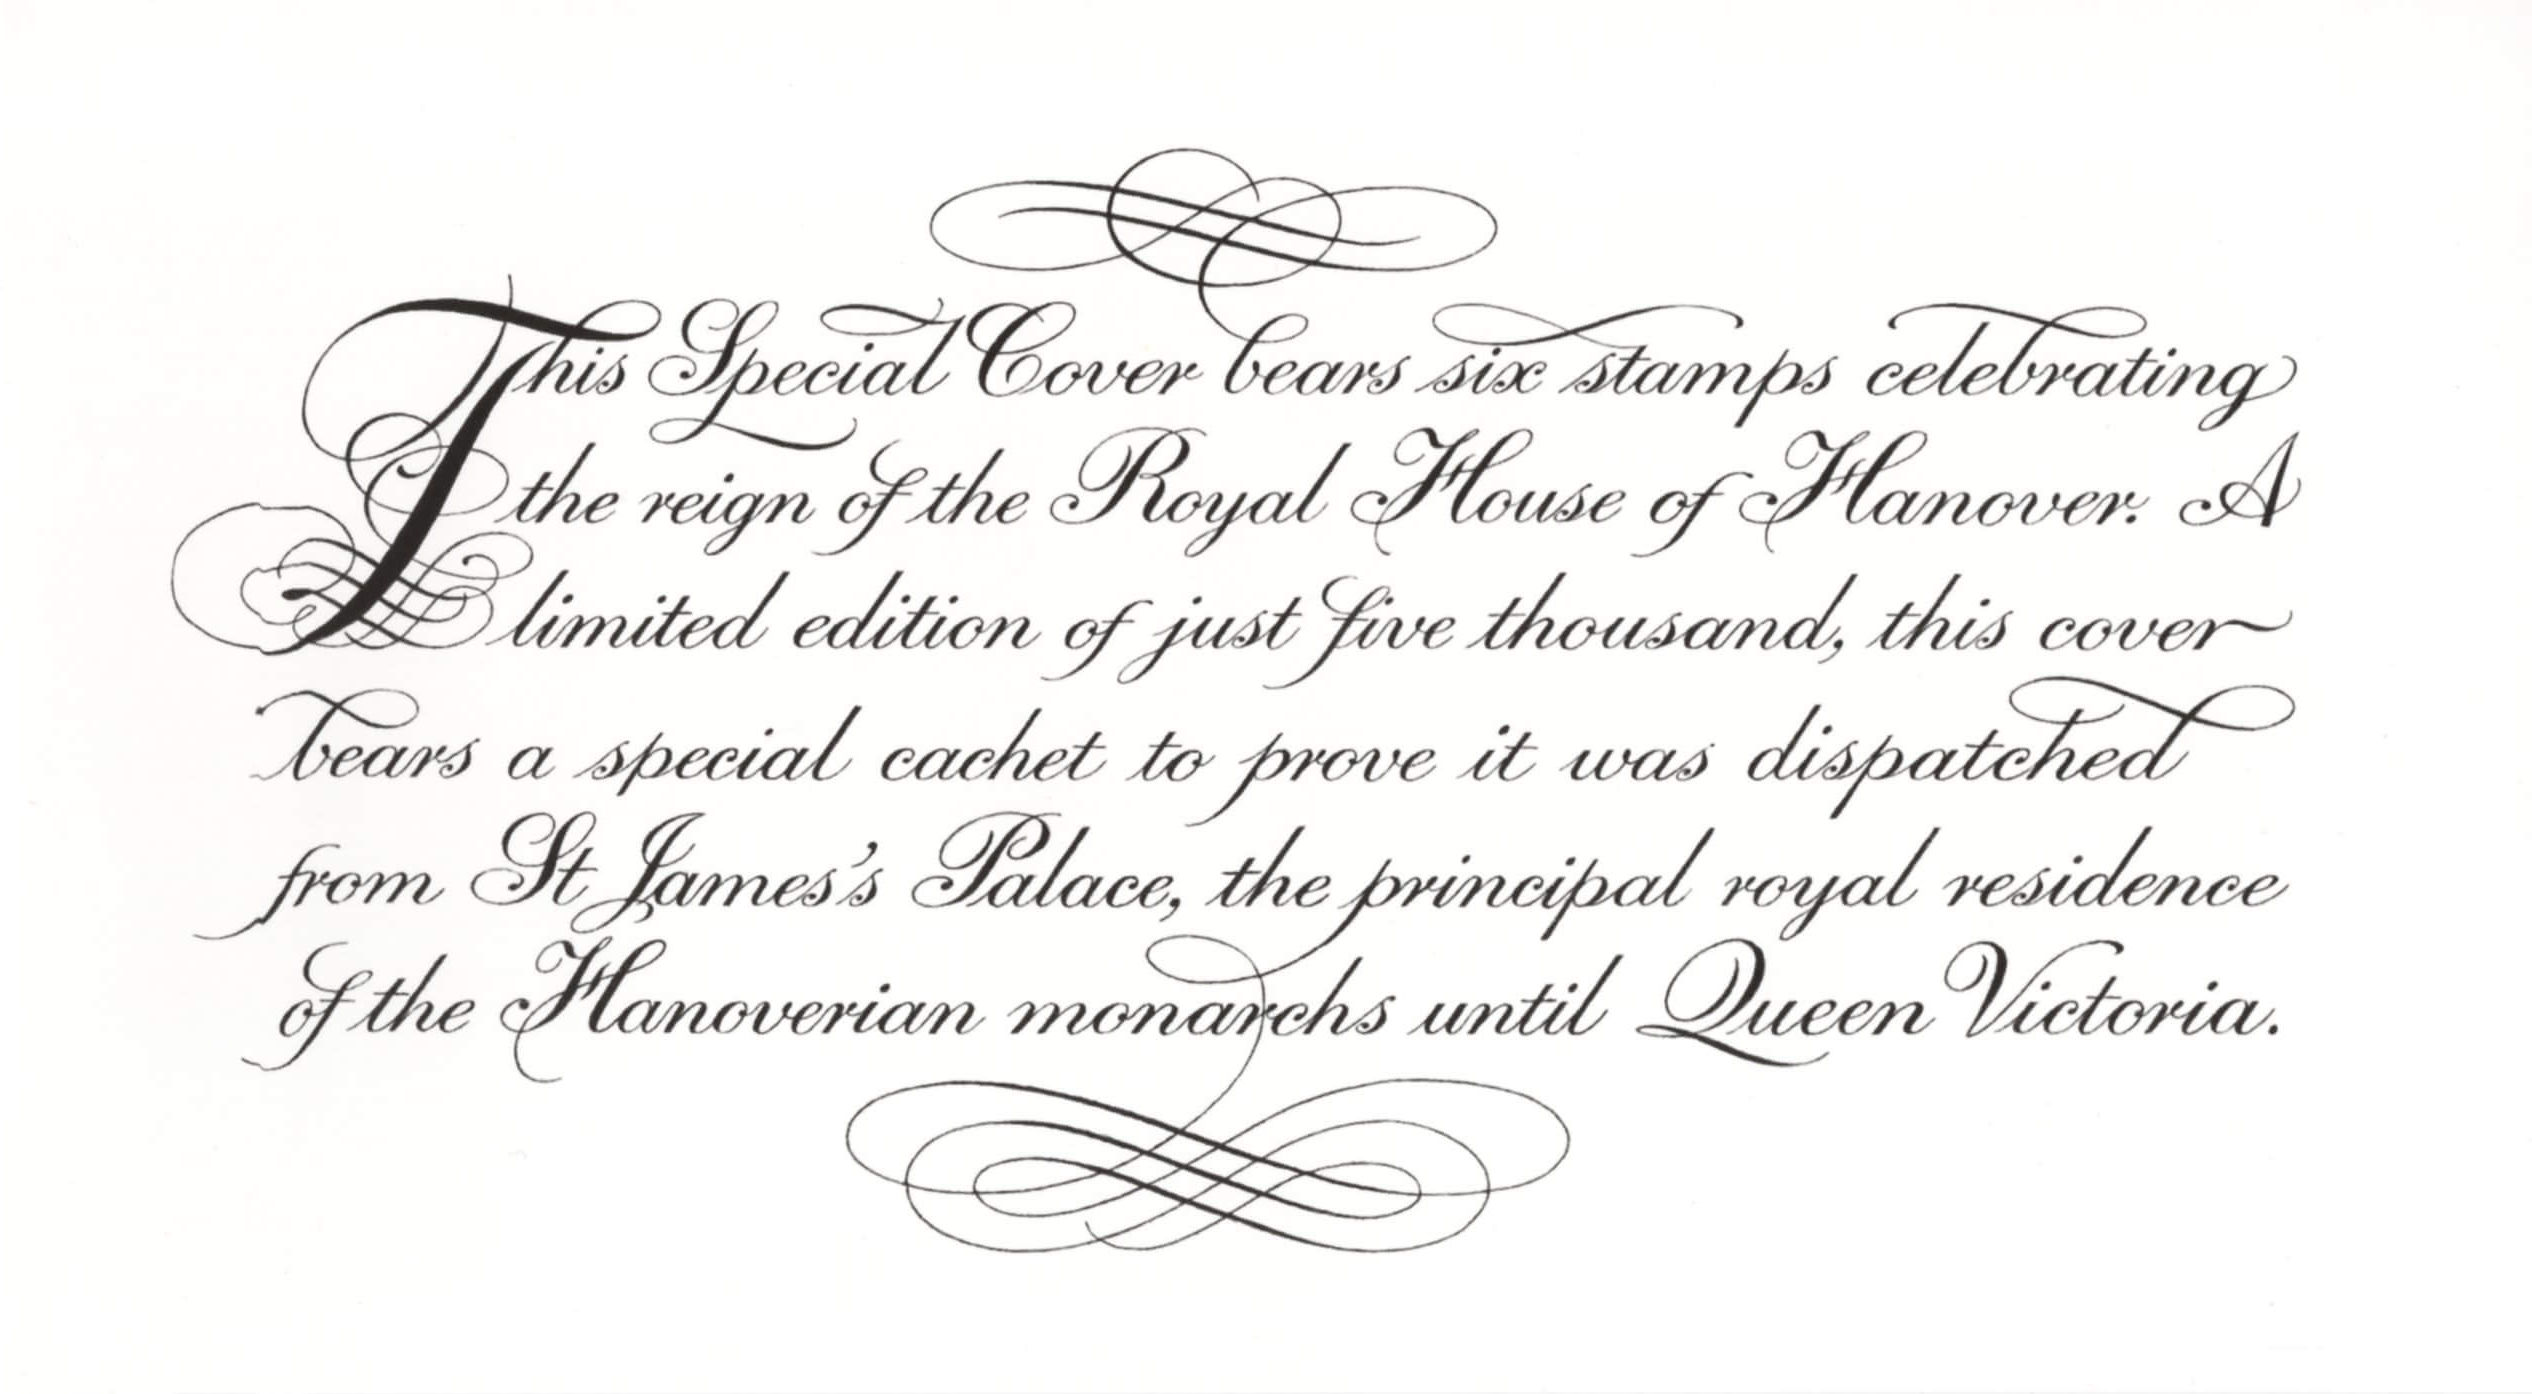 This Special Cover bears six stamps celebrating
the reign of the Royal House of Hanover. A
limited edition of just five thousand, this cover
bears a special cachet to prove it was dispatched
from St James's Palace, the principal royal residence
of the Hanoverian monarchs until Queen Victoria.